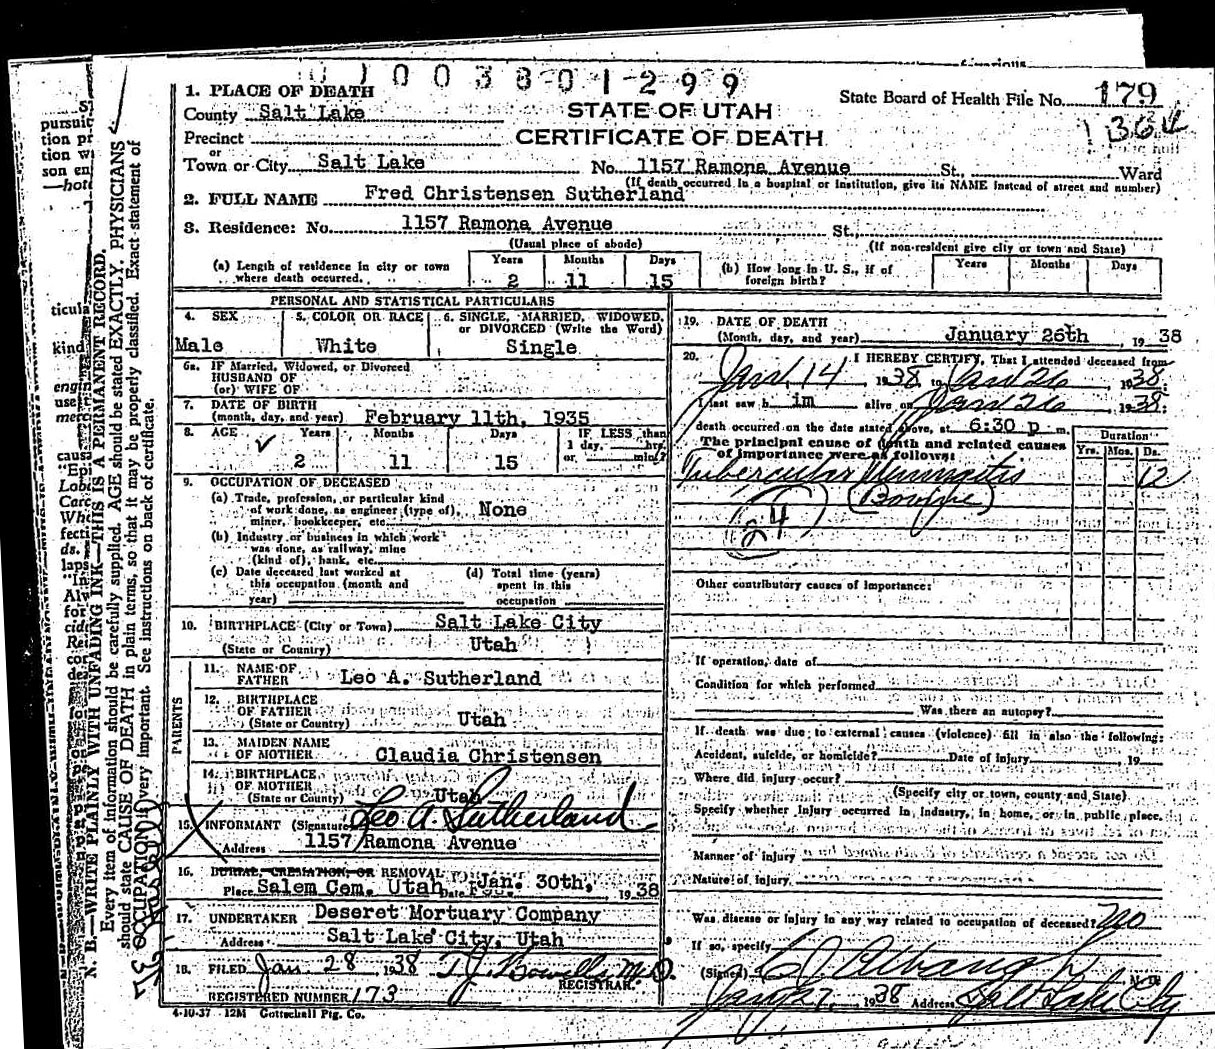 0 1 0 0 3 8 0 1 - 2 9 9
1. PLACE OF DEATH
County Salt Lake
STATE OF UTAH
State Board of Health File No. 179
Precinct
CERTIFICATE OF DEATH
364
or
Town or City Salt Lake No. 1157 Ramona Avenue St., Ward
(If death occurred in a hospital or institution, give its NAME instead of street and number)
2. FULL NAME Fred Christensen Sutherland
3. Residence: No. 1157 Ramona Avenue St.,
(Usual place of abode) (If non-resident give city or town and State)
(a) Length of residence in city or town where death occurred. Years 2 Months 11 Days 15
(b) How long in U. S., if of foreign birth? Years Months Days
PERSONAL AND STATISTICAL PARTICULARS
4. SEX Male
5. COLOR OR RACE White
6. SINGLE, MARRIED, WIDOWED, or DIVORCED (Write the Word) Single
6a. IF Married, Widowed, or Divorced
HUSBAND OF
(or) WIFE OF
7. DATE OF BIRTH
(month, day, and year) February 11th, 1935
8. AGE Years 2 Months 11 Days 15 IF LESS than 1 day, hrs. or min.?
9. OCCUPATION OF DECEASED
(a) Trade, profession, or particular kind
of work done, as engineer (type of), None
miner, bookkeeper, etc.
(b) Industry or business in which work
was done, as railway, mine
(kind of), bank, etc.
(c) Date deceased last worked at this occupation (month and year)
(d) Total time (years) spent in this occupation
10. BIRTHPLACE (City or Town) Salt Lake City
(State or Country) Utah
PARENTS
11. NAME OF FATHER Leo A. Sutherland
12. BIRTHPLACE OF FATHER
(State or Country) Utah
13. MAIDEN NAME OF MOTHER Claudia Christensen
14. BIRTHPLACE OF MOTHER
(State or County) Utah
15. INFORMANT (Signature) Leo A Sutherland
Address 1157 Ramona Avenue
16. BURIAL, CREMATION, OR REMOVAL
Place Salem Cem. Utah Date Jan. 30th, 1938
17. UNDERTAKER Deseret Mortuary Company
Address Salt Lake City, Utah
18. FILED Jan. 28 1938
REGISTRAR.
REGISTERED NUMBER 173
4-10-37 12M Gottschall Ptg. Co.
19. DATE OF DEATH
(Month, day, and year) January 26th, 1938
20. I HEREBY CERTIFY, That I attended deceased from
Jan. 14 1938, to Jan 26, 1938;
I last saw him alive on Jan 26 1938;
death occurred on the date stated above, at 6:30 p m.
The principal cause of death and related causes
of importance were as follows:
Duration
Yrs. Mos. Ds.
Tubercular Meningitis 12
(Bovine)
24
Other contributory causes of importance:
If operation, date of
Condition for which performed
Was there an autopsy?
If death was due to external causes (violence) fill in also the following:
Accident, suicide, or homicide? Date of injury , 19
Where did injury occur?
(Specify city or town, county and State)
Specify whether injury occurred in industry, in home, or in public place.
Manner of injury
Nature of injury
Was disease or injury in any way related to occupation of deceased? no
If so, specify
(Signed) M. D.
Jan 27, 1938 Address Salt Lake City
N. B.—WRITE PLAINLY WITH UNFADING INK—THIS IS A PERMANENT RECORD.
Every item of information should be carefully supplied. AGE should be stated EXACTLY. PHYSICIANS
should state CAUSE OF DEATH in plain terms, so that it may be properly classified. Exact statement of
OCCUPATION is very important. See instructions on back of certificate.